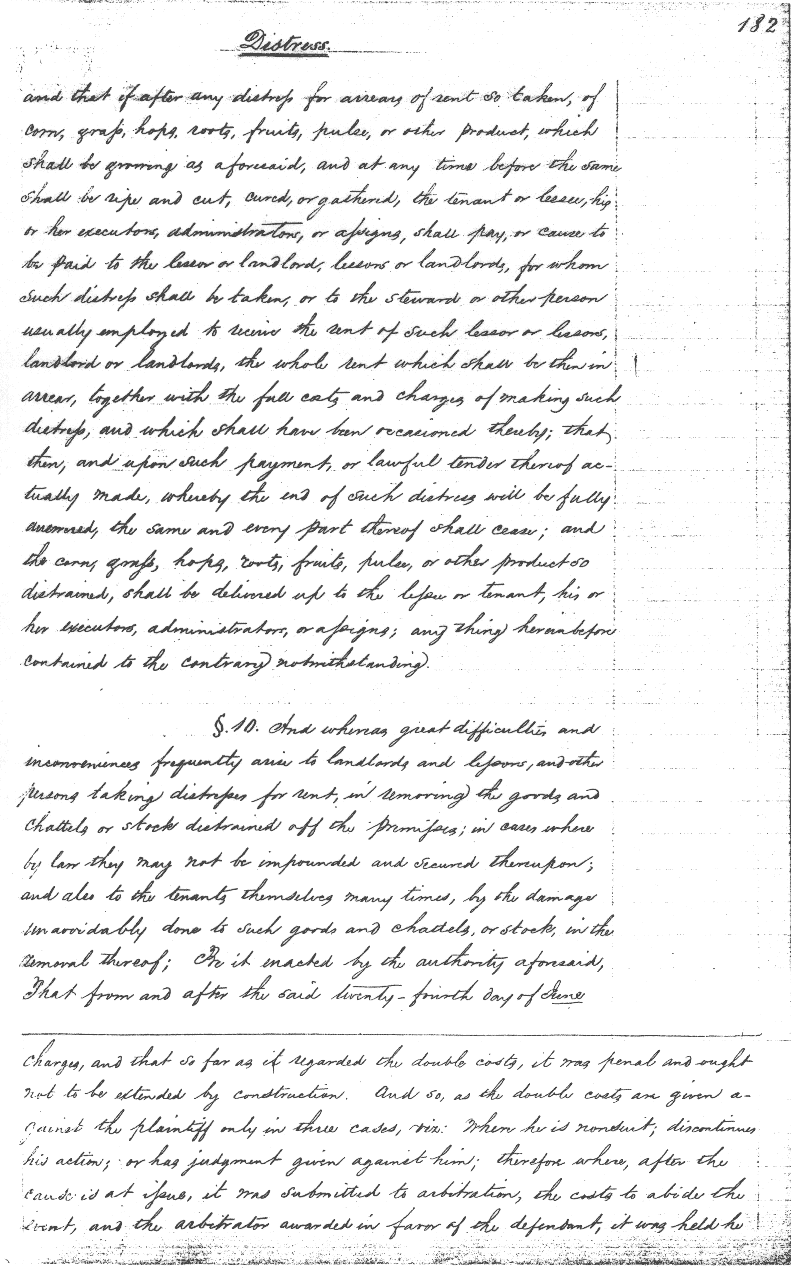 182
Distress.
and that if after any distress for arrears of rent so taken, of
corn, grass, hops, roots, fruits, pulse, or other product, which
shall be growing as aforesaid, and at any time before the same
shall be ripe and cut, cured, or gathered, the tenant or lessee, his
or her executors, administrators, or assigns, shall pay, or cause to
be paid to the lessor or landlord, lessors or landlords, for whom
such distress shall be taken, or to the steward or other person
usually employed to receive the rent of such lessor or lessors,
landlord or landlords, the whole rent which shall be then in
arrear, together with the full costs and charges of making such
distress, and which shall have been occasioned thereby; that
then, and upon such payment, or lawful tender thereof ac-
tually made, whereby the end of such distress will be fully
answered, the same and every part thereof shall cease; and
the corn, grass, hops, roots, fruits, pulse, or other product so
distrained, shall be delivered up to the lessee or tenant, his or
her executors, administrators, or assigns; any thing hereinbefore
contained to the contrary notwithstanding.
§.10. And whereas great difficulties and
inconveniences frequently arise to landlords and lessors, and other
persons taking distresses for rent, in removing the goods and
chattels or stock distrained off the premises; in cases where
by law they may not be impounded and secured thereupon;
and also to the tenants themselves many times, by the damage
unavoidably done to such goods and chattels, or stock, in the
removal thereof; Be it enacted by the authority aforesaid,
That from and after the said twenty-fourth day of June
charges, and that so far as it regarded the double costs, it was penal and ought
not to be extended by construction. And so, as the double costs are given a-
gainst the plaintiff only in three cases, viz: When he is nonsuit; discontinues
his action; or has judgment given against him; therefore where, after the
cause is at issue, it was submitted to arbitration, the costs to abide the
event, and the arbitrator awarded in favor of the defendant, it was held he